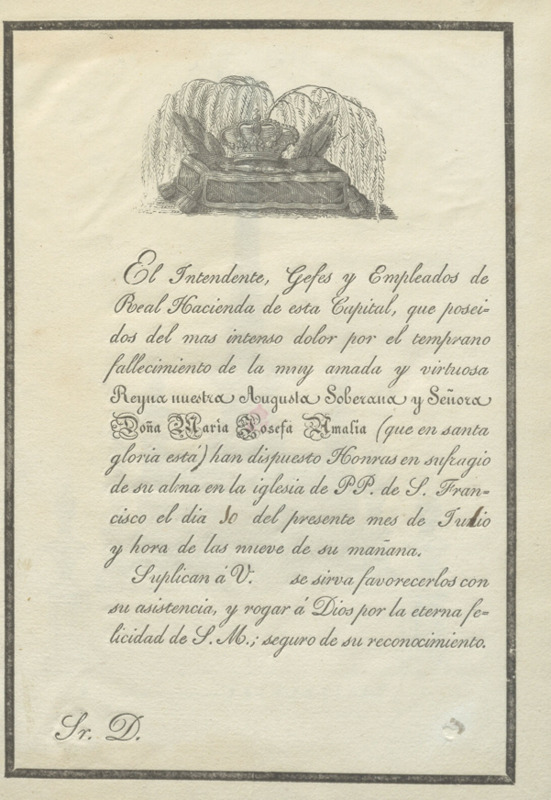 El Intendente, Gefes y Empleados de
Real Hacienda de esta Capital, que posei-
dos del mas intenso dolor por el temprano
fallecimiento de la muy amada y virtuosa
Reyna nuestra Augusta Soberana y Señora
Doña María Josefa Amalia (que en santa
gloria está) han dispuesto Honras en sufragio
de su alma en la iglesia de PP. de S. Fran-
cisco el dia 10 del presente mes de Julio
y hora de las nueve de su mañana.
Suplican á V. se sirva favorecerlos con
su asistencia, y rogar á Dios por la eterna fe-
licidad de S. M.; seguro de su reconocimiento.
Sr. D.